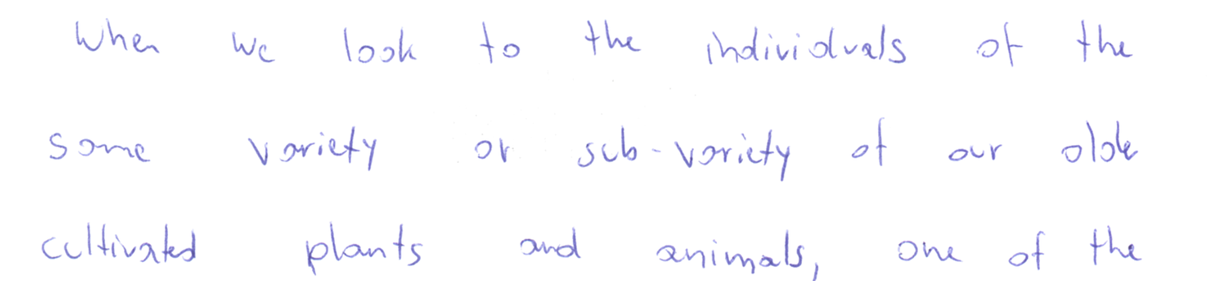 When we look to the individuals of the
same variety or sub-variety of our older
cultivated plants and animals, one of the